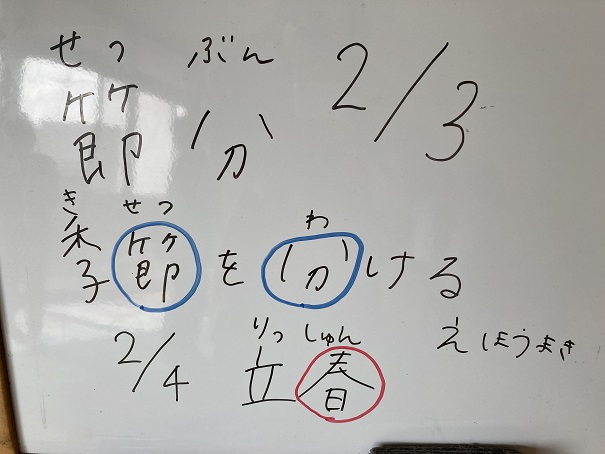 せつ ぶん
節分 2/3
きせつ わ
季節を分ける
りっしゅん えほうまき
2/4 立春